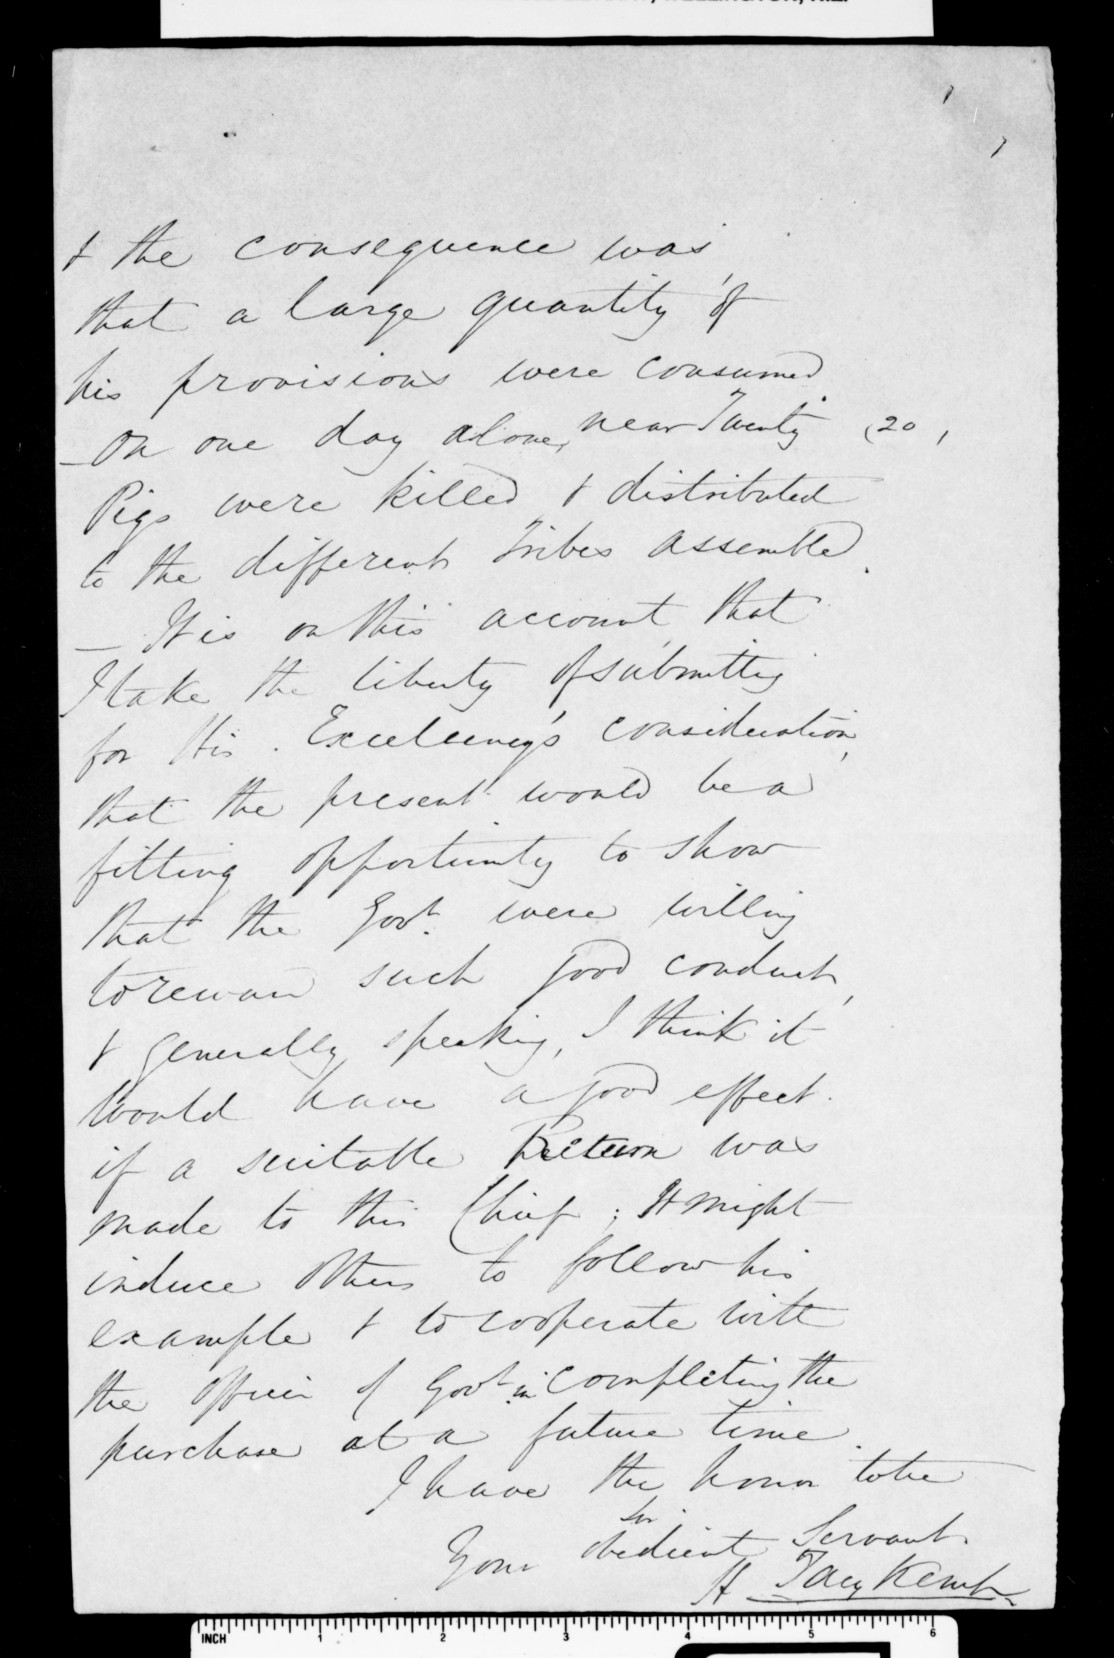 & the consequence was,
that a large quantity of
his provisions were consumed
– On one day alone, near Twenty (20,
Pigs were killed & distributed
to the different Tribes assembled.
— It is on this account, that
I take the liberty of submitting
for His Excellency's consideration,
that the present would be a
fitting opportunity to show
that the Govt. were willing
to reward such good conduct,
& generally speaking, I think it
would have a good effect.
if a suitable Return was
made to this Chief; It might
induce others to follow his
example & to cooperate with
the officer of Govt. in completing the
purchase at a future time.
I have the honor to be
Sir
Your obedient Servant.
H Tacy Kemp
INCH 1 2 3 4 5 6